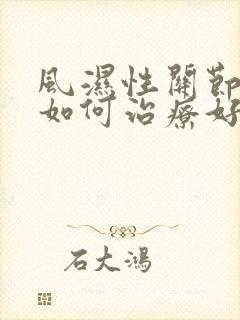 風濕性關節
如何治療好
石大鴻